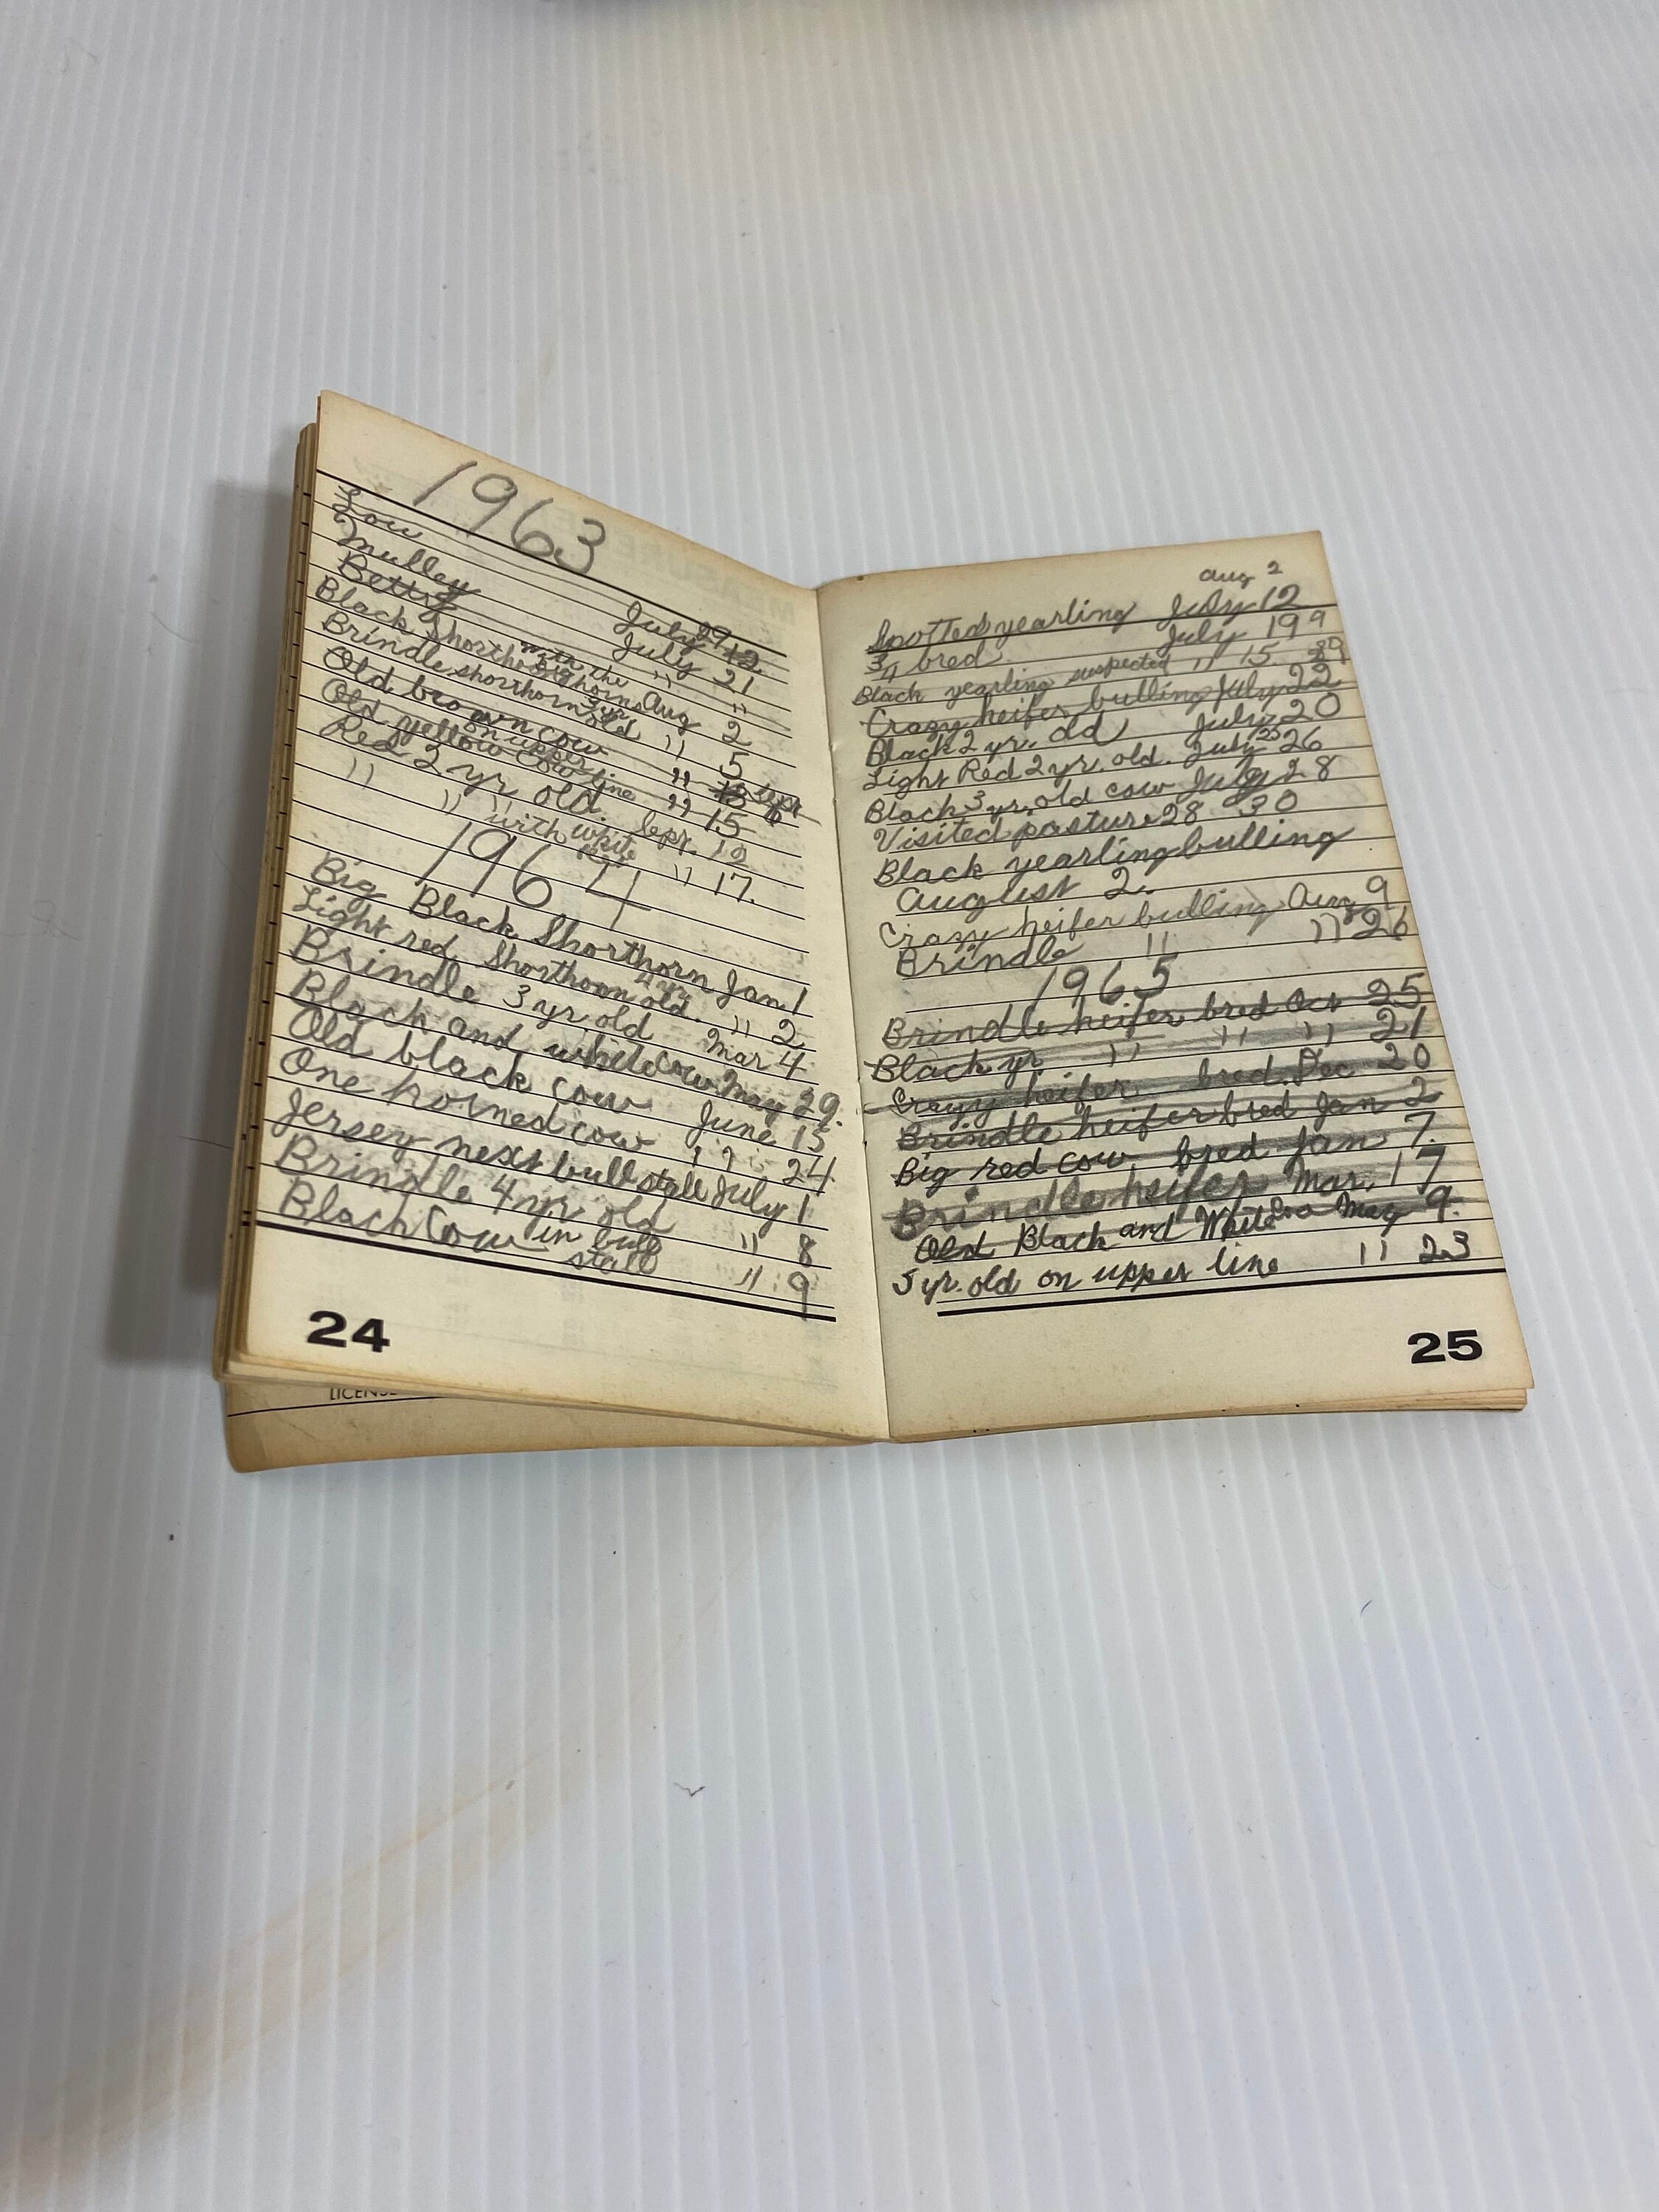 1963
Low
Mulley July 29 12
Betty July 21
Black Shorthorn with the big horns " "
Brindle shorthorn 3 yr old Aug 2
Old brown cow " 5
on upper line
Old yellow cow " 13 Sept 6
Red 2 yr old. " 15
Sept. 12
" " " with white " 17.
1964
Big Black Shorthorn Jan 1
Light red Shorthorn 4 yr old. " 2
Brindle 3 yr. old Mar 4
Black and white cow May 29.
Old black cow June 15
One horned cow " 24
Jersey next bull stall July 1
Brindle 4 yr old " 8
Black Cow in bull stall " 9
24
LICENSE
Aug 2
Spotted yearling July 12
3/4 bred July 19
Black yearling suspected " 15
Crazy heifer bulling July 22
Black 2 yr. old July 20
Light Red 2 yr. old. July 25 26
Black 3 yr. old cow July 28
Visited pasture 28 30
Black yearling bulling
August 2.
Crazy heifer bulling Aug 9
Brindle " " 26
1965
Brindle heifer bred Oct 25
Black yr " " " 21
Crazy heifer bred. Dec 20
Brindle heifer bred Jan 2
Big red cow bred Jan 7.
Brindle heifer Mar. 17
Old Black and White May 9.
5 yr. old on upper line " 23
25